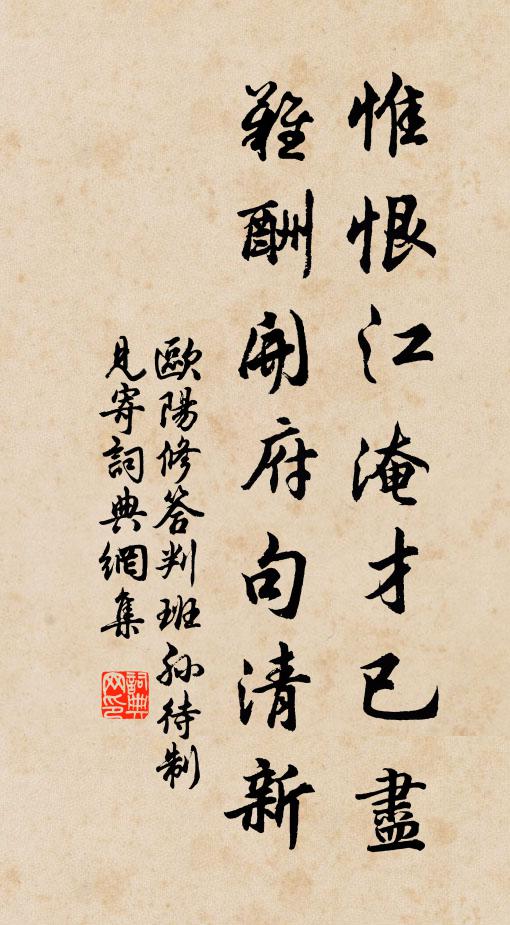 惟恨江淹才已盡
難酬開府句清新
歐陽修答判班孫待制
見寄詞典網集
詞典网印